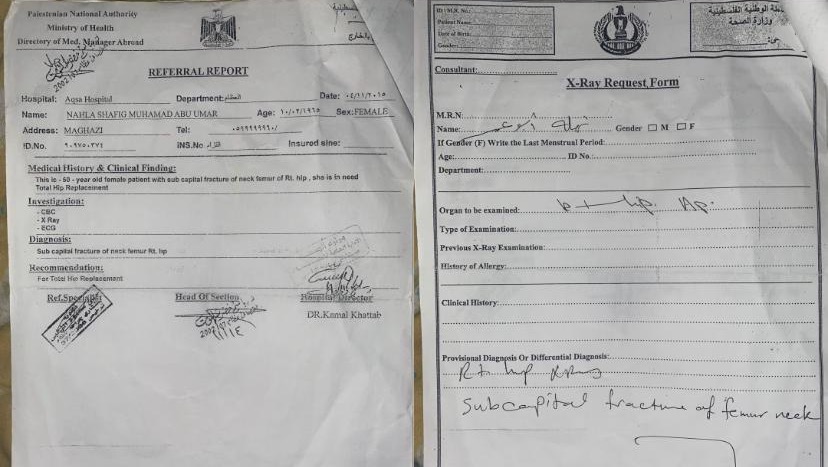 Palestenian National Authority
Ministry of Health
Directory of Med. Manager Abroad
REFERRAL REPORT
Hospital: Aqsa Hospital Department: العظام Date:
Name: NAHLA SHAFIG MUHAMAD ABU UMAR Age: Sex:FEMALE
Address: MAGHAZI Tel:
ID.No. ٩٠٩٧٠٢٧٤ INS.No Insured sine:
Medical History & Clinical Finding:
This is - 60 - year old female patient with sub capital fracture of neck femur of Rt. hip , she is in need
Total Hip Replacement
Investigation:
- CBC
- X Ray
- ECG
Diagnosis:
Sub capital fracture of neck femur Rt. hip
Recommendation:
For Total Hip Replacement
Ref.Specialist Head Of Section Hospital Director
DR.Kamal Khattab
السلطة الوطنية الفلسطينية
وزارة الصحة
ID / M.R. No:
Patient Name:
Date of Birth:
Gender:
Consultant:
X-Ray Request Form
M.R.N
Name: Gender M F
If Gender (F) Write the Last Menstrual Period:
Age: ID No.
Department:
Organ to be examined: hip. Ap.
Type of Examination:
Previous X-Ray Examination:
History of Allergy:
Clinical History:
Provisional Diagnosis Or Differential Diagnosis:
Rt hip
subcapital fracture of femur neck